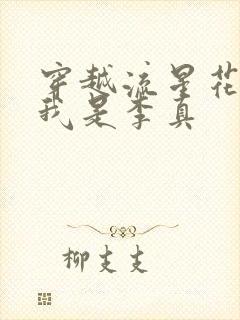 穿越流星花
我是李真
柳支支